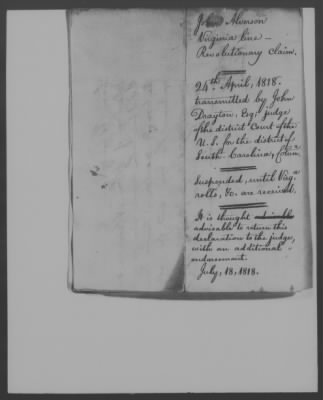 John Alverson
Virginia line -
Revolutionary claim.
24th April, 1818.
transmitted by John
Drayton, Esq, judge
of the district Court of the
U. S. for the district of
South Carolina,
Suspended, until Virga
rolls, &c. are received.
It is thought
advisable to return this
declaration to the judge,
with an additional
endorsement.
July, 18, 1818.